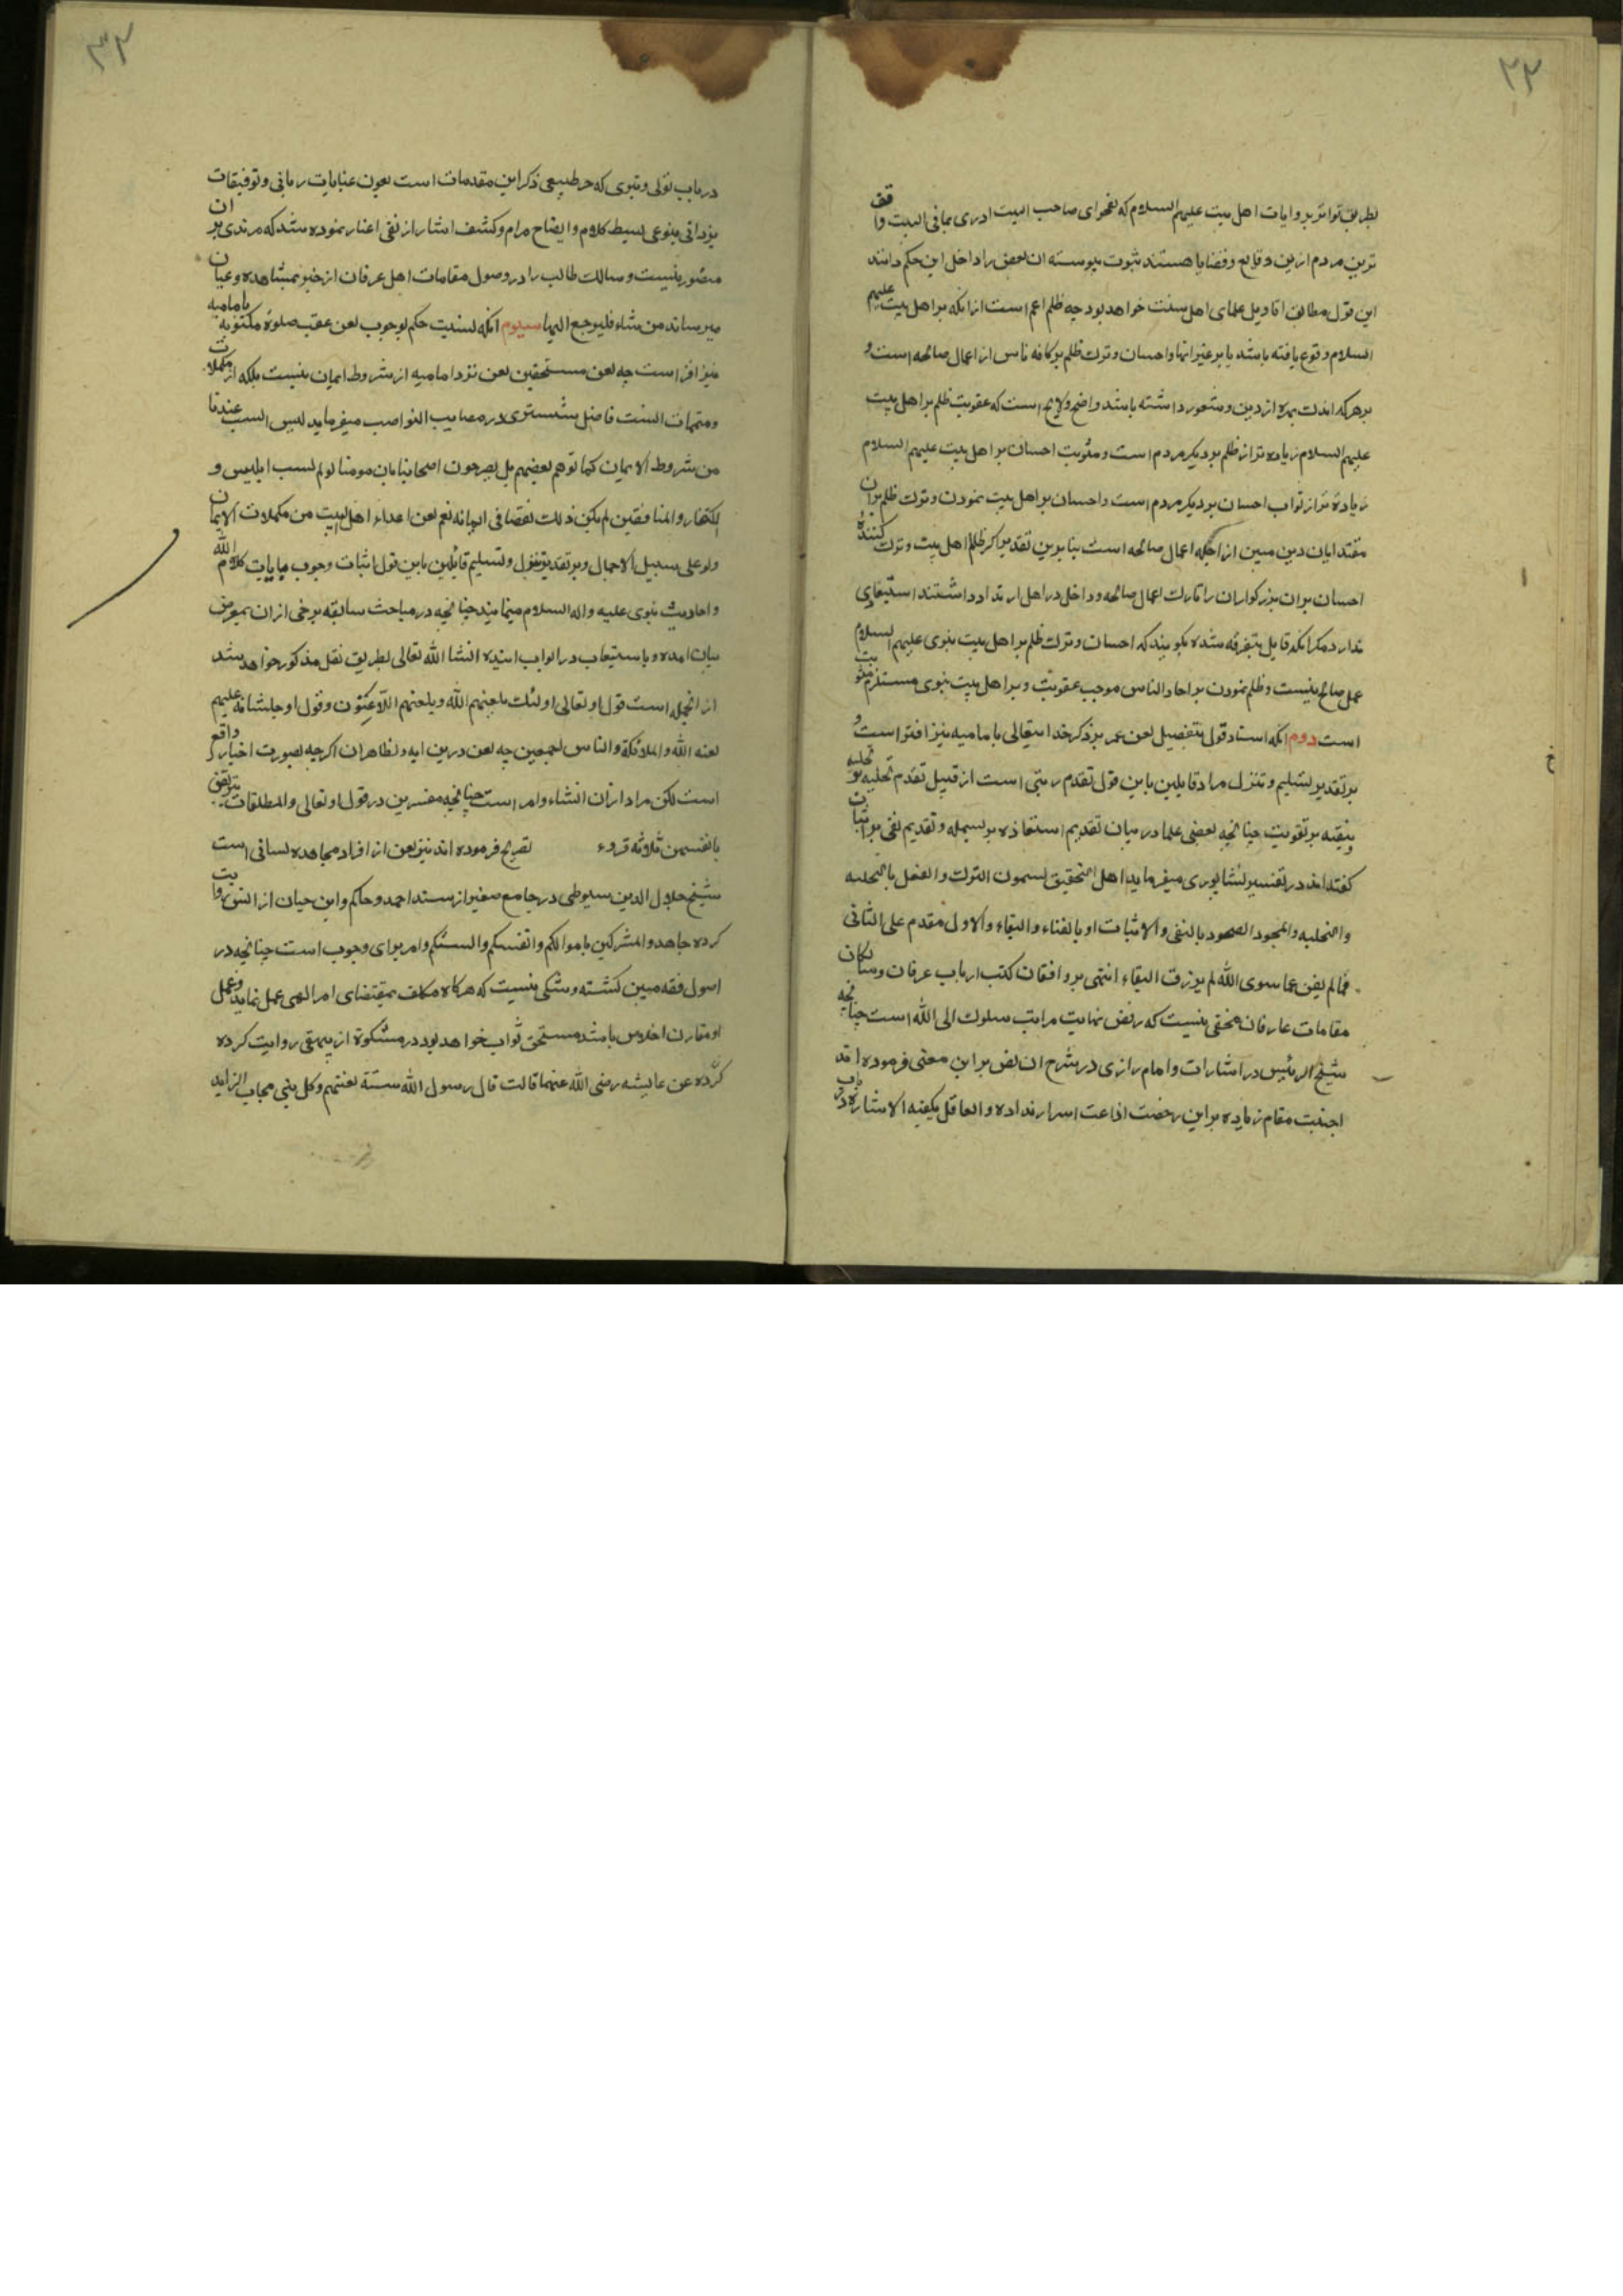 ٣٣
بطریق تواتر بروایات اهل بیت علیهم السلام که بفحوای صاحب البیت ادری بما فی البیت واقف
ترین مردم ازین وقایع وقضایا هستند ثبوت پیوسته ان بعض را داخل این حکم دانند
این قول مطابق اقاویل علمای اهل سنت خواهد بود چه ظلم اعم است ازانکه بر اهل بیت علیهم
السلام وقوع یافته باشد یا بر غیر انها واحسان وترک ظلم بر کافه ناس از اعمال صالحه است و
بر هر که اندک بهره از دین وشعور داشته باشد واضح ولایح است که عقوبت ظلم بر اهل بیت
علیهم السلام زیاده تر از ظلم بر دیگر مردم است ومثوبت احسان بر اهل بیت علیهم السلام
زیاده تر از ثواب احسان بر دیگر مردم است واحسان بر اهل بیت نمودن وترک ظلم بر ان
مقتدایان دین مبین از جمله اعمال صالحه است بنا برین تقدیر اگر ظلم اهل بیت وترک کننده
احسان بران بزرکواران را تارک اعمال صالحه وداخل در اهل ارتداد داشتند استبعادی
ندارد مکر انکه قایل بتفرقه شده بکویند که احسان وترک ظلم بر اهل بیت نبوی علیهم السلام
عمل صالح نیست وظلم نمودن بر احاد الناس موجب عقوبت وبر اهل بیت نبوی مستلزم مثوبت
است دوم انکه اسناد قول بتفضیل لعن عمر بر ذکر خدایتعالی بامامیه نیز افترا است و
بر تقدیر تسلیم وتنزل مراد قایلین باین قول تقدم رتبی است از قبیل تقدم تخلیه بر تحلیه
وتنقیه بر تقویت چنانچه بعضی علما در بیان تقدیم استعاذه بر بسمله وتقدیم نفی بر اثبات
کفته اند در تفسیر نیشابوری میفرماید اهل التحقیق یسمون الترک والفعل بالتخلیه
والتحلیه والمحو والصحو وبالنفی والاثبات او بالفناء والبقاء والاول مقدم علی الثانی
فما لم یفن عما سوی الله لم یرزق البقاء انتهی بر واقفان کتب ارباب عرفان وسالکان
مقامات عارفان مخفی نیست که رفض نهایت مراتب سلوک الی الله است چنانچه
شیخ الرئیس در اشارات وامام رازی در شرح ان نص بر این معنی فرموده اند
اجنبت مقام زیاده بر این رخصت اذاعت اسرار نداده والعاقل یکفیه الاشاره در باب
٣٤
در باب تولی وتبری که حر طبیعی ذکر این مقدمات است بعون عنایات ربانی وتوفیقات
یزدانی بنوعی بسط کلام وایضاح مرام وکشف استار از نقی اعتبار نموده شد که مزیدی بر ان
متصور نیست وسالک طالب را در وصول مقامات اهل عرفان از خبر بمشاهده وعیان
میرساند من شاء فلیرجع الیها سیوم انکه نسبت حکم بوجوب لعن عقب صلوة مکتوبه بامامیه
نیز افترا است چه لعن مستحقین لعن نزد امامیه از شروط ایمان نیست بلکه از مکملات
ومتممات انست فاضل شستری در مصایب النواصب میفرماید لیس السب عندنا
من شروط الایمان کما توهم بعضهم بل یصرحون اصحابنا بان مومنا لو لم یسب ابلیس و
الکفار والمنافقین لم یکن ذلک نقصا فی ایمانه نعم لعن اعداء اهل البیت من مکملات الایمان
ولو علی سبیل الاجمال وبر تقدیر تنزل وتسلیم قایلین باین قول اثبات وجوب بایات کلام الله
واحادیث نبوی علیه واله السلام مینمایند چنانچه در مباحث سابقه برخی ازان بمعرض
بیان امده وباستیعاب در ابواب اتیه انشا الله تعالی بطریق نقل مذکور خواهد شد
از انجمله است قول او تعالی اولئک یلعنهم الله ویلعنهم اللاعنون وقول او جل شانه علیهم
لعنه الله والملائکة والناس اجمعین چه لعن درین ایه ونظایر ان اکرچه بصورت اخبار واقع
است لکن مراد ازان انشاء وامر است چنانچه مفسرین در قول او تعالی والمطلقات یتربصن
بانفسهن ثلاثه قروء تصریح فرموده اند نیز لعن از افراد مجاهده لسانی است
شیخ جلال الدین سیوطی در جامع صغیر از مسند احمد وحاکم وابن حبان از انس روایت
کرده جاهدوا المشرکین باموالکم وانفسکم والسنتکم وامر برای وجوب است چنانچه در
اصول فقه مبین کشته وشکی نیست که هرکاه مکلف بمقتضای امر الهی عمل نماید وعمل
او مقارن اخلاص باشد مستحق ثواب خواهد بود در مشکوة از بیهقی روایت کرده
کرده عن عایشه رضی الله عنها قالت قال رسول الله ستة لعنتهم وکل نبی مجاب الزاید